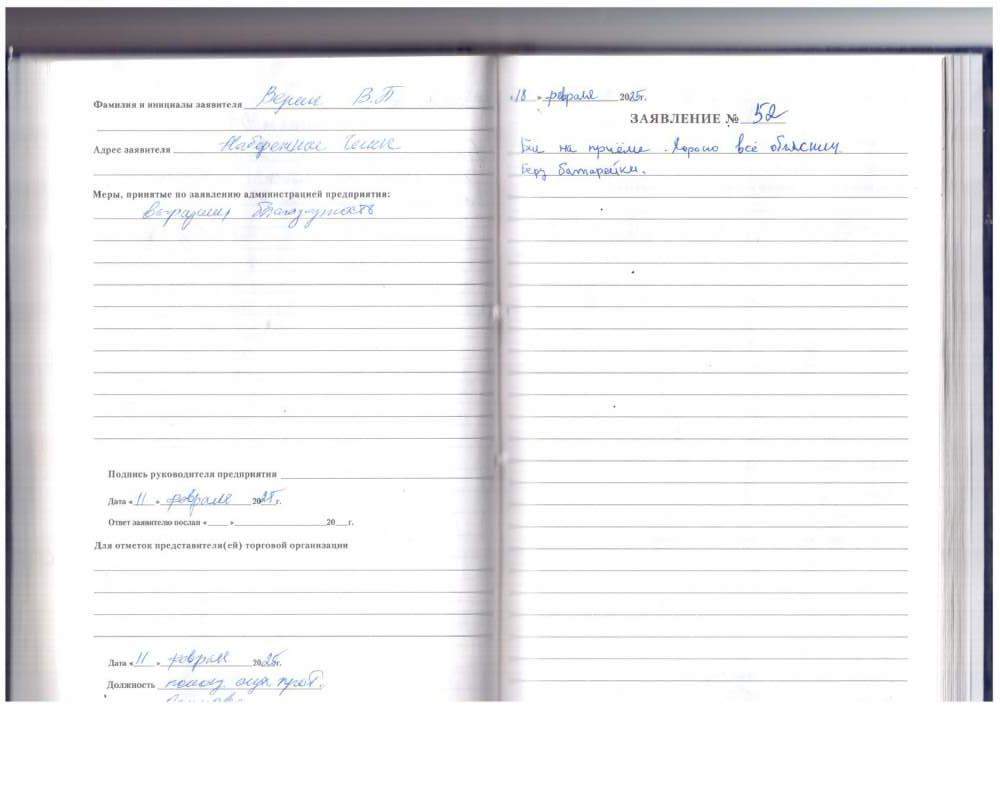 Фамилия и инициалы заявителя В.П
Адрес заявителя
Меры, принятые по заявлению администрацией предприятия:
Подпись руководителя предприятия
Дата « 11 » февраля 2025г.
Ответ заявителю послан « » 20 г.
Для отметок представителя(ей) торговой организации
Дата « 11 » февраля 2025г.
Должность
« 18 » февраля 2025г.
ЗАЯВЛЕНИЕ № 52
на приёме. Хорошо всё объяснили.
батарейки.